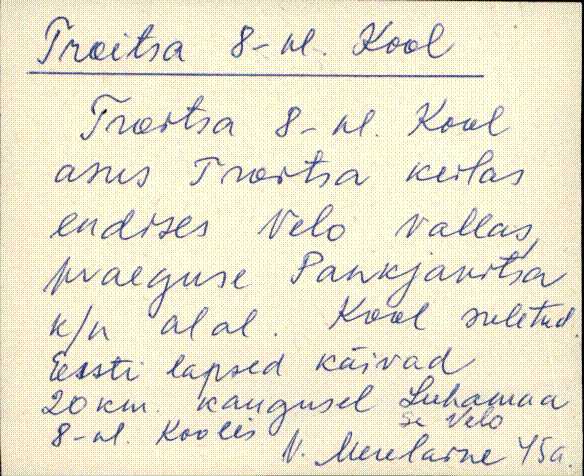 Troitsa 8-kl. Kool
Troitsa 8-kl. Kool
asus Troitsa külas
endises Velo vallas,
praeguse Pankjavitsa
k/n alal. Kool suletud.
Eesti lapsed käivad
20 km. kaugusel Luhamaa
se Velo
8-kl. Koolis
V. Merelaine 45a.